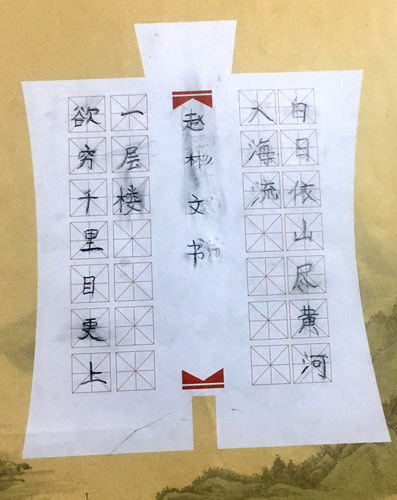 白日依山尽黄河
入海流
欲穷千里目更上
一层楼
赵彬文书